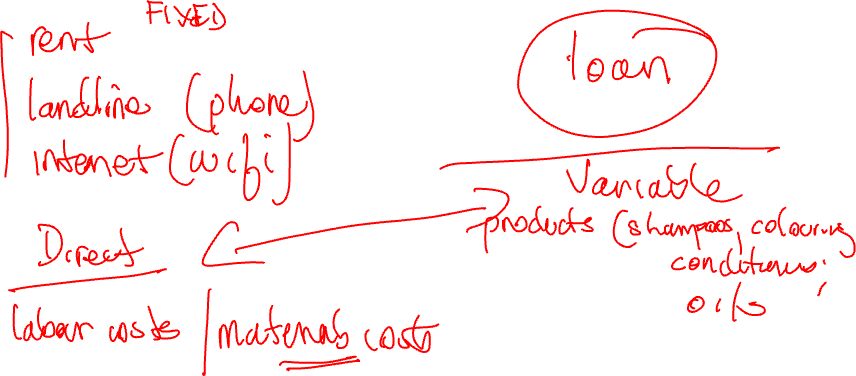 FIXED
rent
landline (phone)
internet (wifi)
loan
Variable
products (shampoos, colouring
conditioners.
oils
Direct
labour costs | materials costs